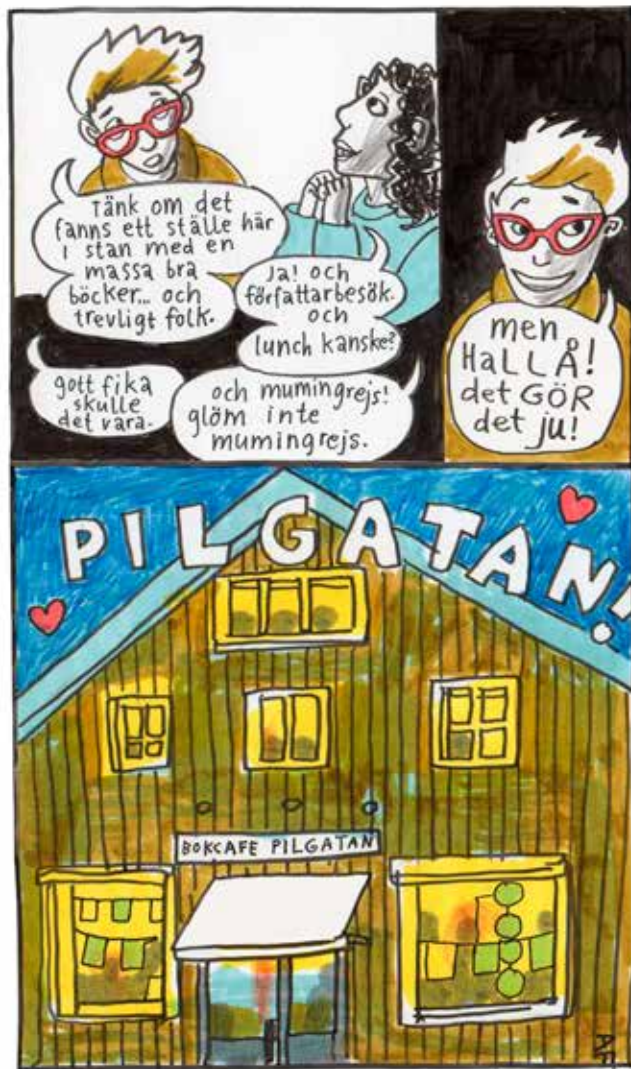 Tänk om det
fanns ett ställe här
i stan med en
massa bra
böcker... och
trevligt folk.
Ja! och
författarbesök.
och
lunch kanske?
gott fika
skulle
det vara.
och mumingrejs!
glöm inte
mumingrejs.
men
HaLLÅ!
det GÖR
det ju!
PILGATAN!
BOKCAFE PILGATAN
AF